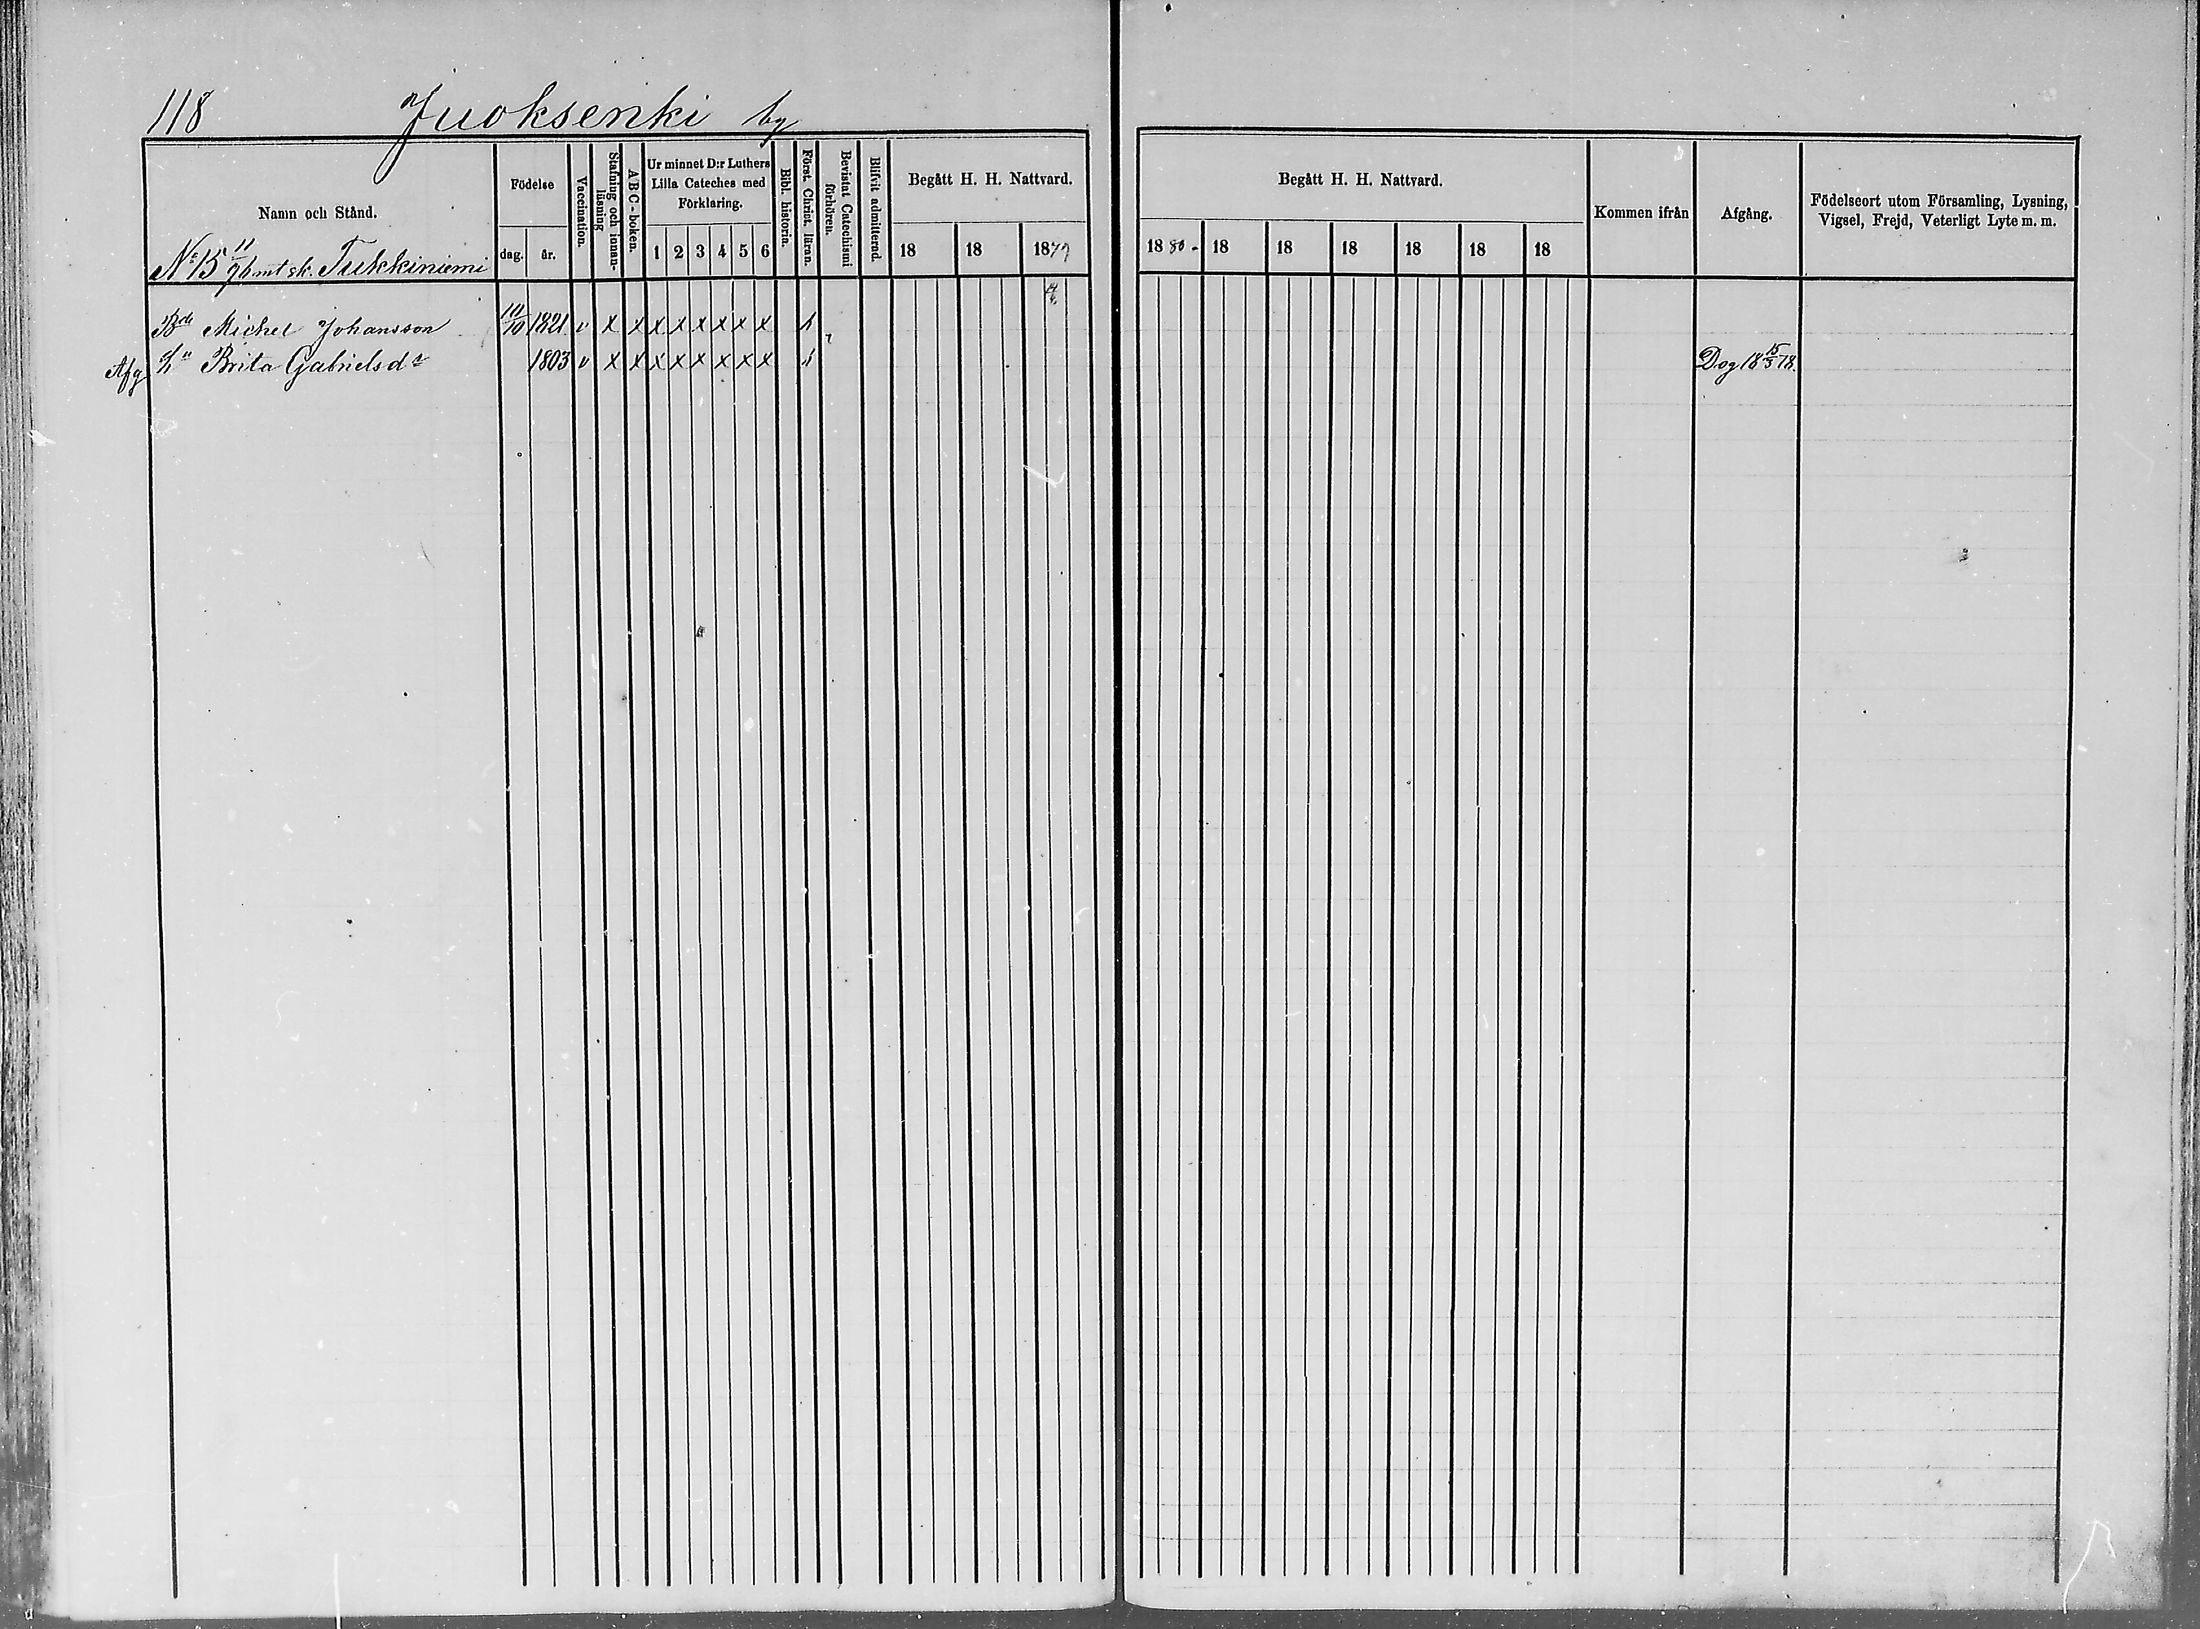 118 Juoksenki by
Namn och Stånd.
Födelse
dag. år.
Vaccination.
Stafning och innan-läsning
ABC-boken.
Ur minnet D:r Luthers
Lilla Cateches med
Förklaring.
1 2 3 4 5 6
Bibl. historia.
Först. Christ. läran.
Bevistat Catechismi förhören.
Blifvit admitterad.
Begått H. H. Nattvard.
18 18 1879
Begått H. H. Nattvard.
1880 18 18 18 18 18 18
Kommen ifrån
Afgång.
Födelseort utom Församling, Lysning,
Vigsel, Frejd, Veterligt Lyte m. m.
No 15 11/96 mt sk. Tukkiniemi
Bde Michel Johansson 10/10 1821 v x x x x x x x x
Afg Hu Brita Gabrielsdr 1803 v x x x x x x x x Dog 18 15/3 78.